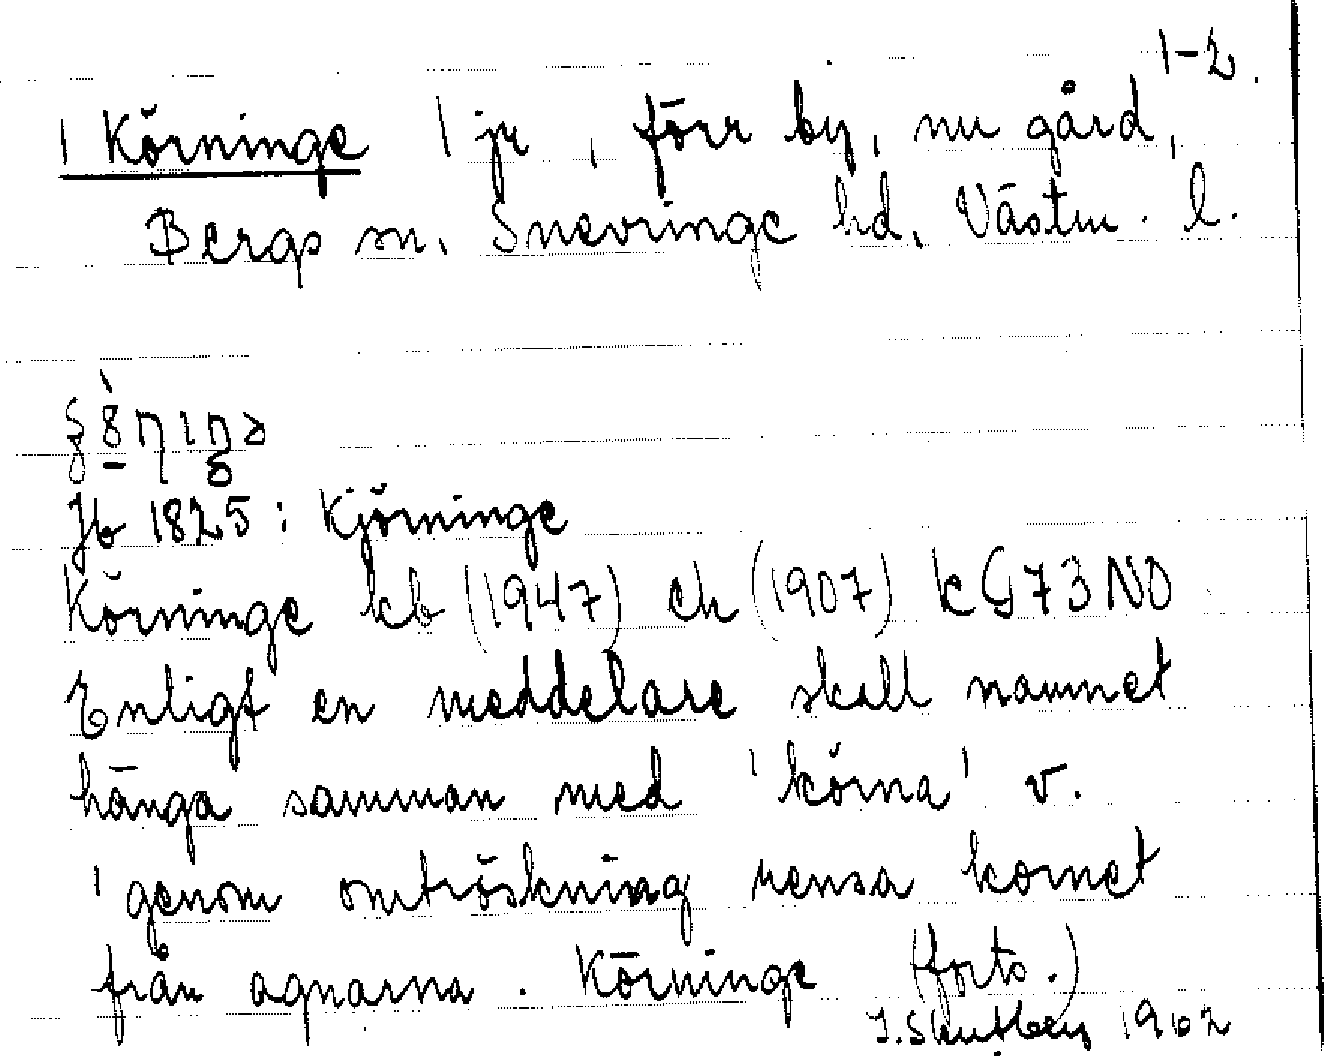 1-2.
1 Körninge 1 jr, förr by, nu gård,
Bergs sn. Snevringe hd, Västm. l.
Jb 1825: Kjörninge
Körninge kb (1947) ek (1907) k G73NO
Enligt en meddelare skall namnet
hänga samman med 'körna' v.
'genom omtröskning rensa kornet
från agnarna. Körninge (forts.)
1962